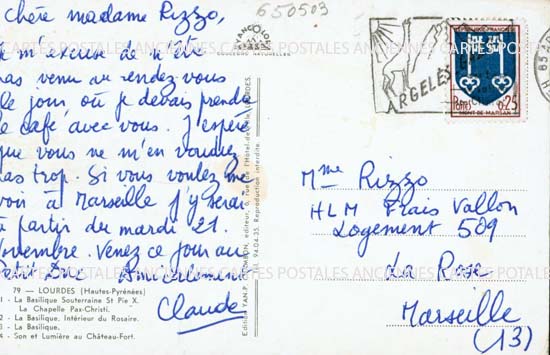 650503
Chère madame Rizzo,
je m'excuse de n'être
pas venu au rendez-vous
le jour où je devais prendre
le café avec vous. J'espère
que vous ne m'en voudrez
pas trop. Si vous voulez me
voir à Marseille j'y serai
à partir du mardi 21
novembre. Venez ce jour au
Petit Duc Amicalement
Claude
79 — LOURDES (Hautes-Pyrénées)
1 - La Basilique Souterraine St Pie X.
La Chapelle Pax-Christi.
2 - La Basilique. Intérieur du Rosaire.
3 - La Basilique.
4 - Son et Lumière au Château-Fort.
YAN
COULEURS NATURELLES
Reproduction interdite.
94-04-35.
ARGELES
REPUBLIQUE FRANCAISE
Postes
0,25
MONT-DE-MARSAN
Mme Rizzo
HLM Frais Vallon
Logement 509
La Rose
Marseille
(13)
CARTES POSTALES ANCIENNES CARTES POSTALES ANCIENNES CARTES POSTALES